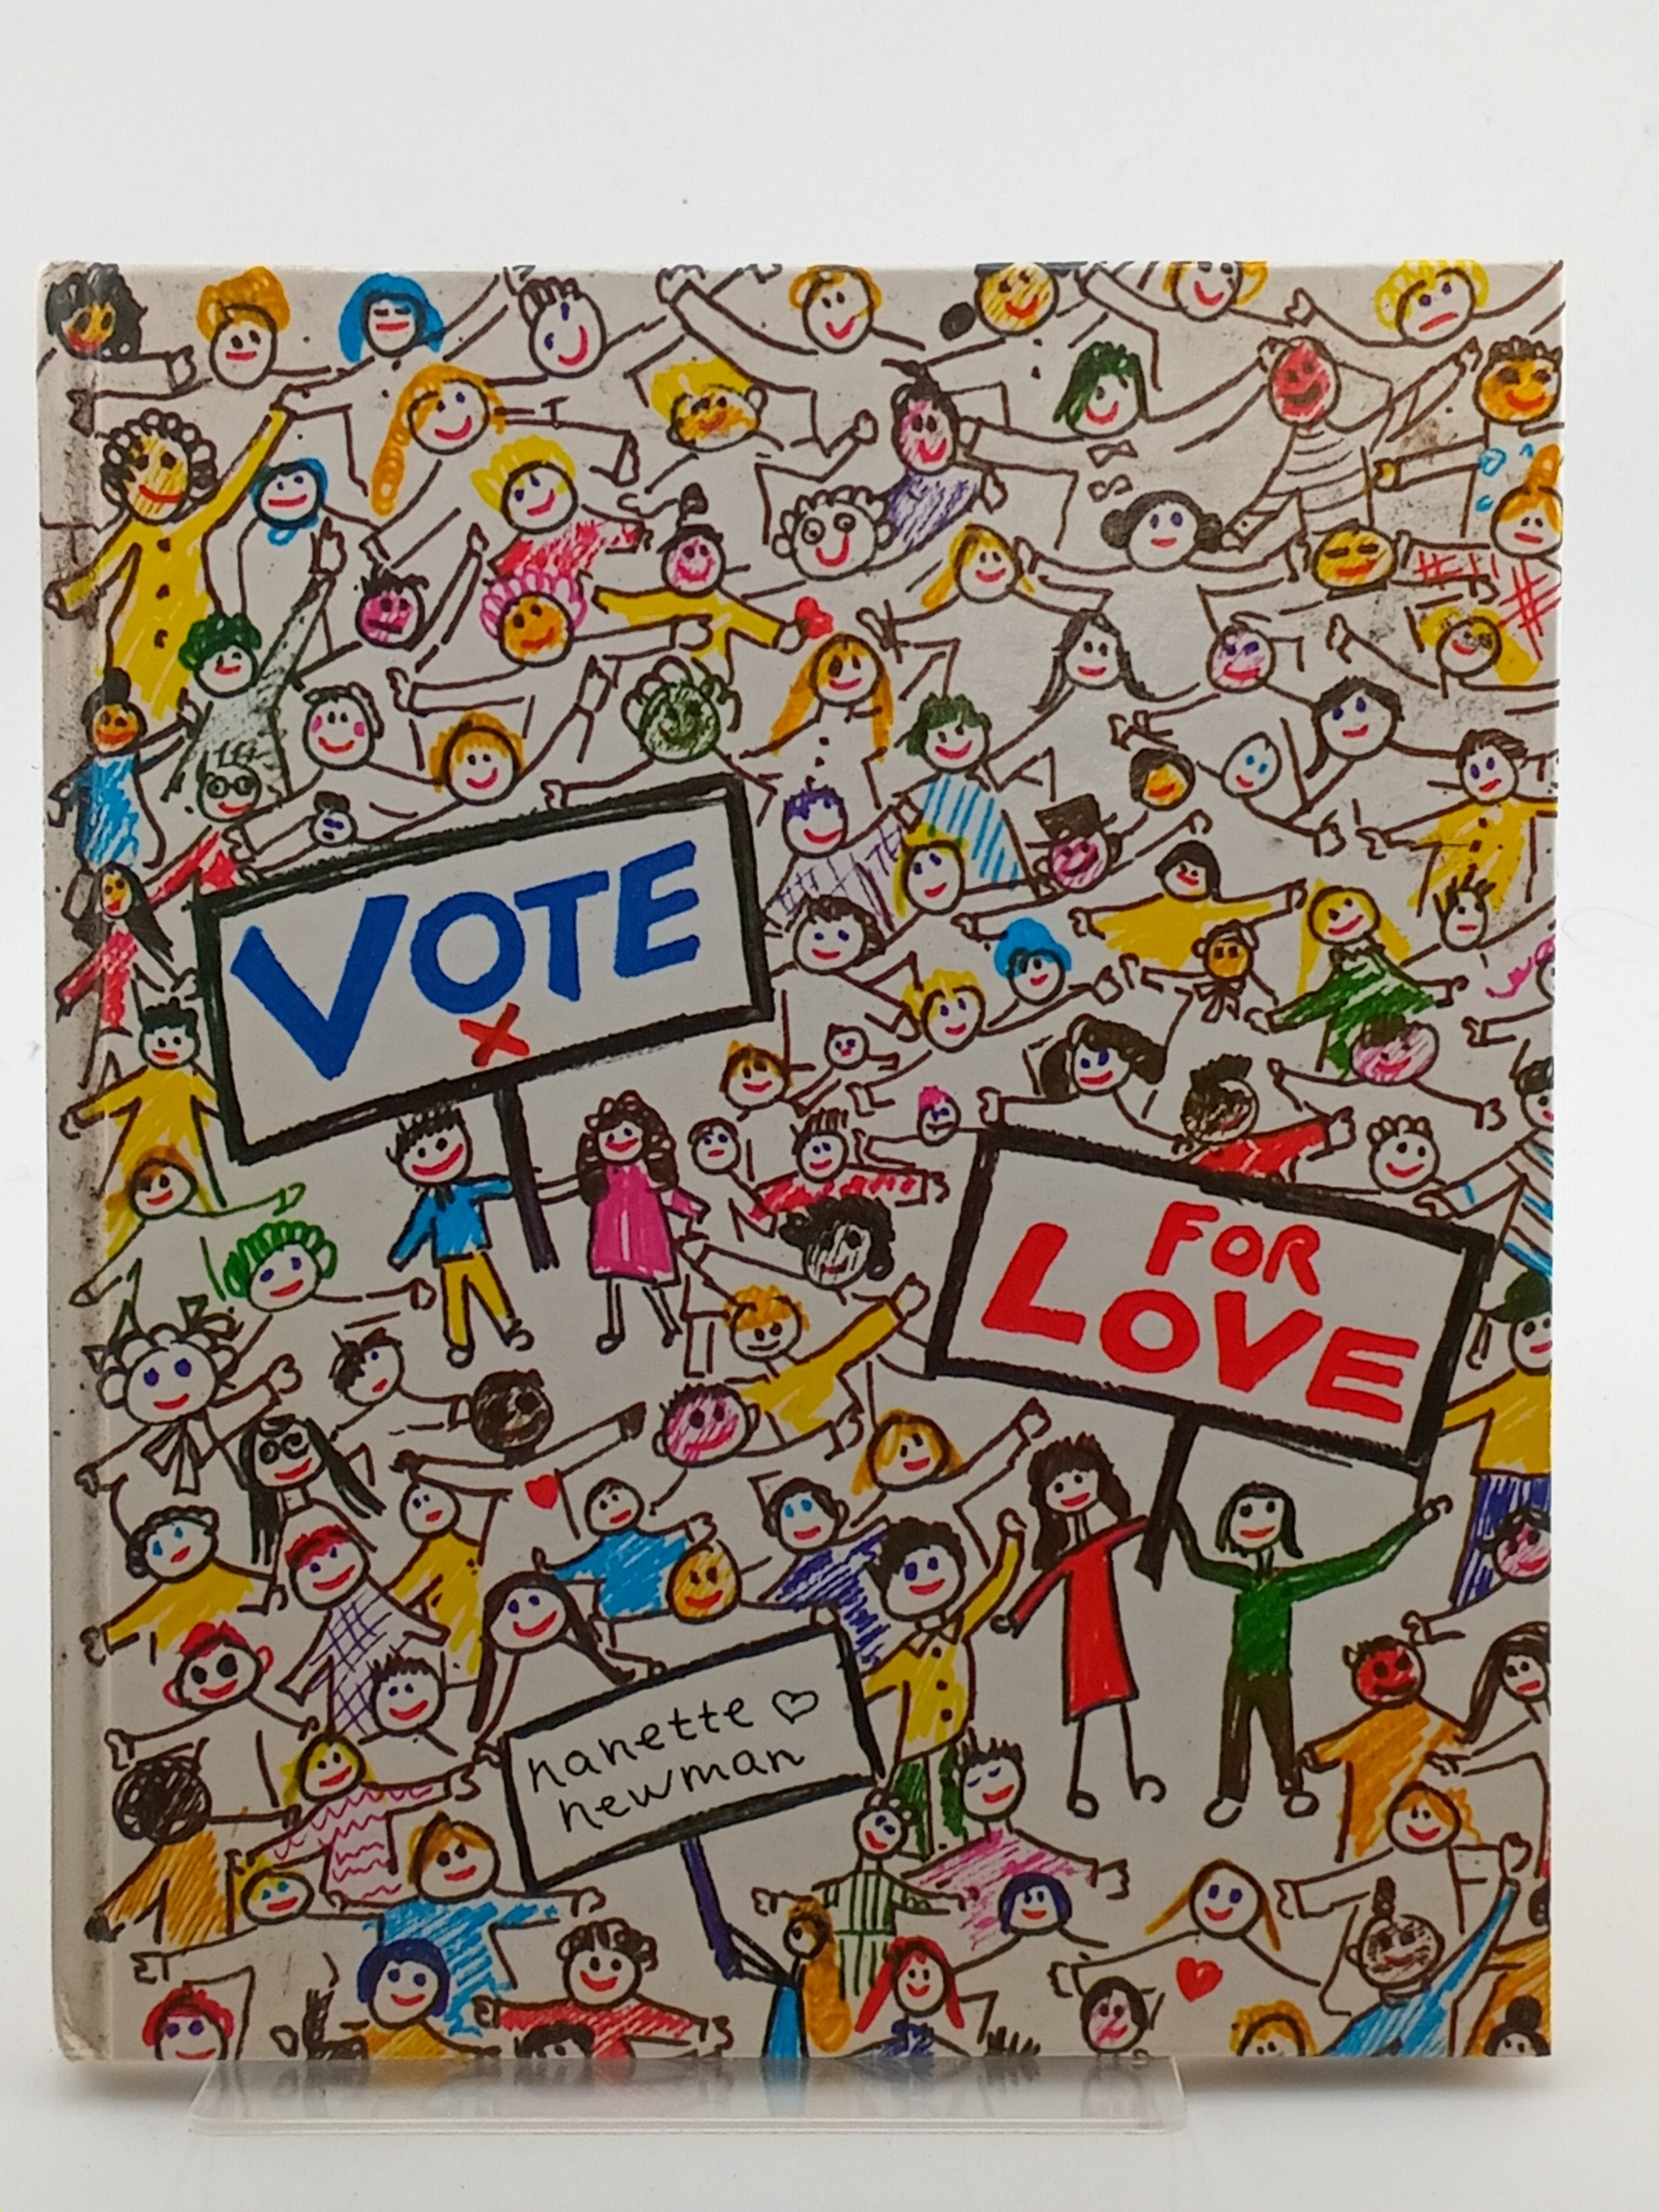 VOTE
X
FOR
LOVE
nanette ♡
newman